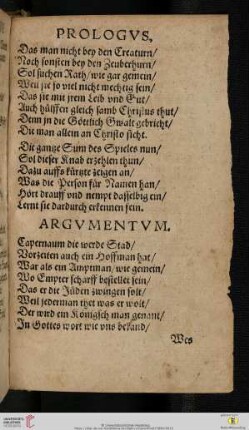 PROLOGVS.
Das man nicht bey den Creaturn/
Noch sonsten bey den Zeuberhurn/
Sol suchen Rath/ wie gar gemein/
Weil sie so viel nicht mechtig sein/
Das sie mit jrem Leib vnd Gut/
Auch hülffen gleich samb Christus thut/
Denn jn die Göttlich Gwalt gebricht/
Die man allein an Christo sicht.
Die gantze Sum des Spieles nun/
Sol dieser Knab erzehlen thun/
Dazu auffs kürtzte zeigen an/
Was die Person für Namen han/
Hört drauff vnd nempt dasselbig ein/
Lernt sie dardurch erkennen fein.
ARGVMENTVM.
Capernaum die werde Stad/
Vorzeiten auch ein Hoffman hat/
War als ein Amptman/ wie gemein/
Wo Empter scharff bestellet sein/
Das er die Jüden zwingen solt/
Weil jederman thet was er wolt/
Der wird ein Königsch man genant/
In Gottes wort wie vns bekand/
Wes